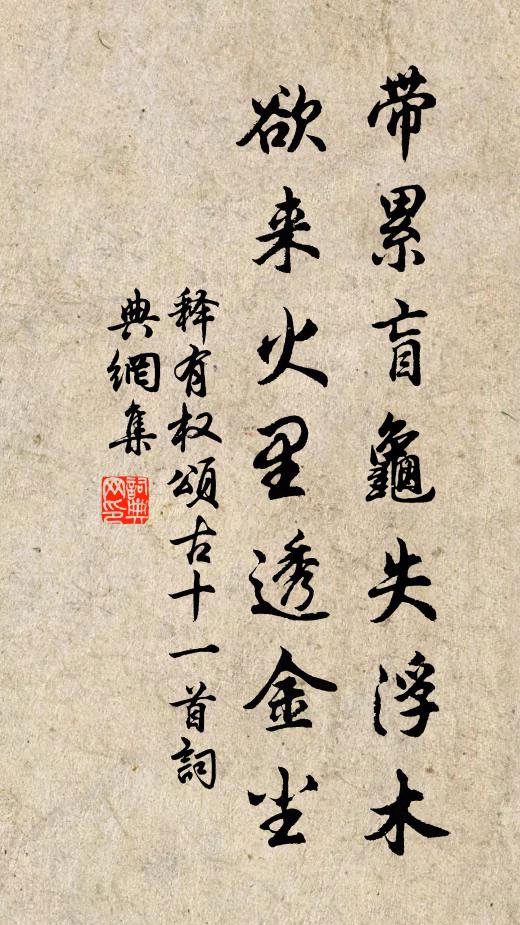 带累盲龜失浮木
欲来火里透金尘
释有权頌古十一首詞
典網集
詞典
网印